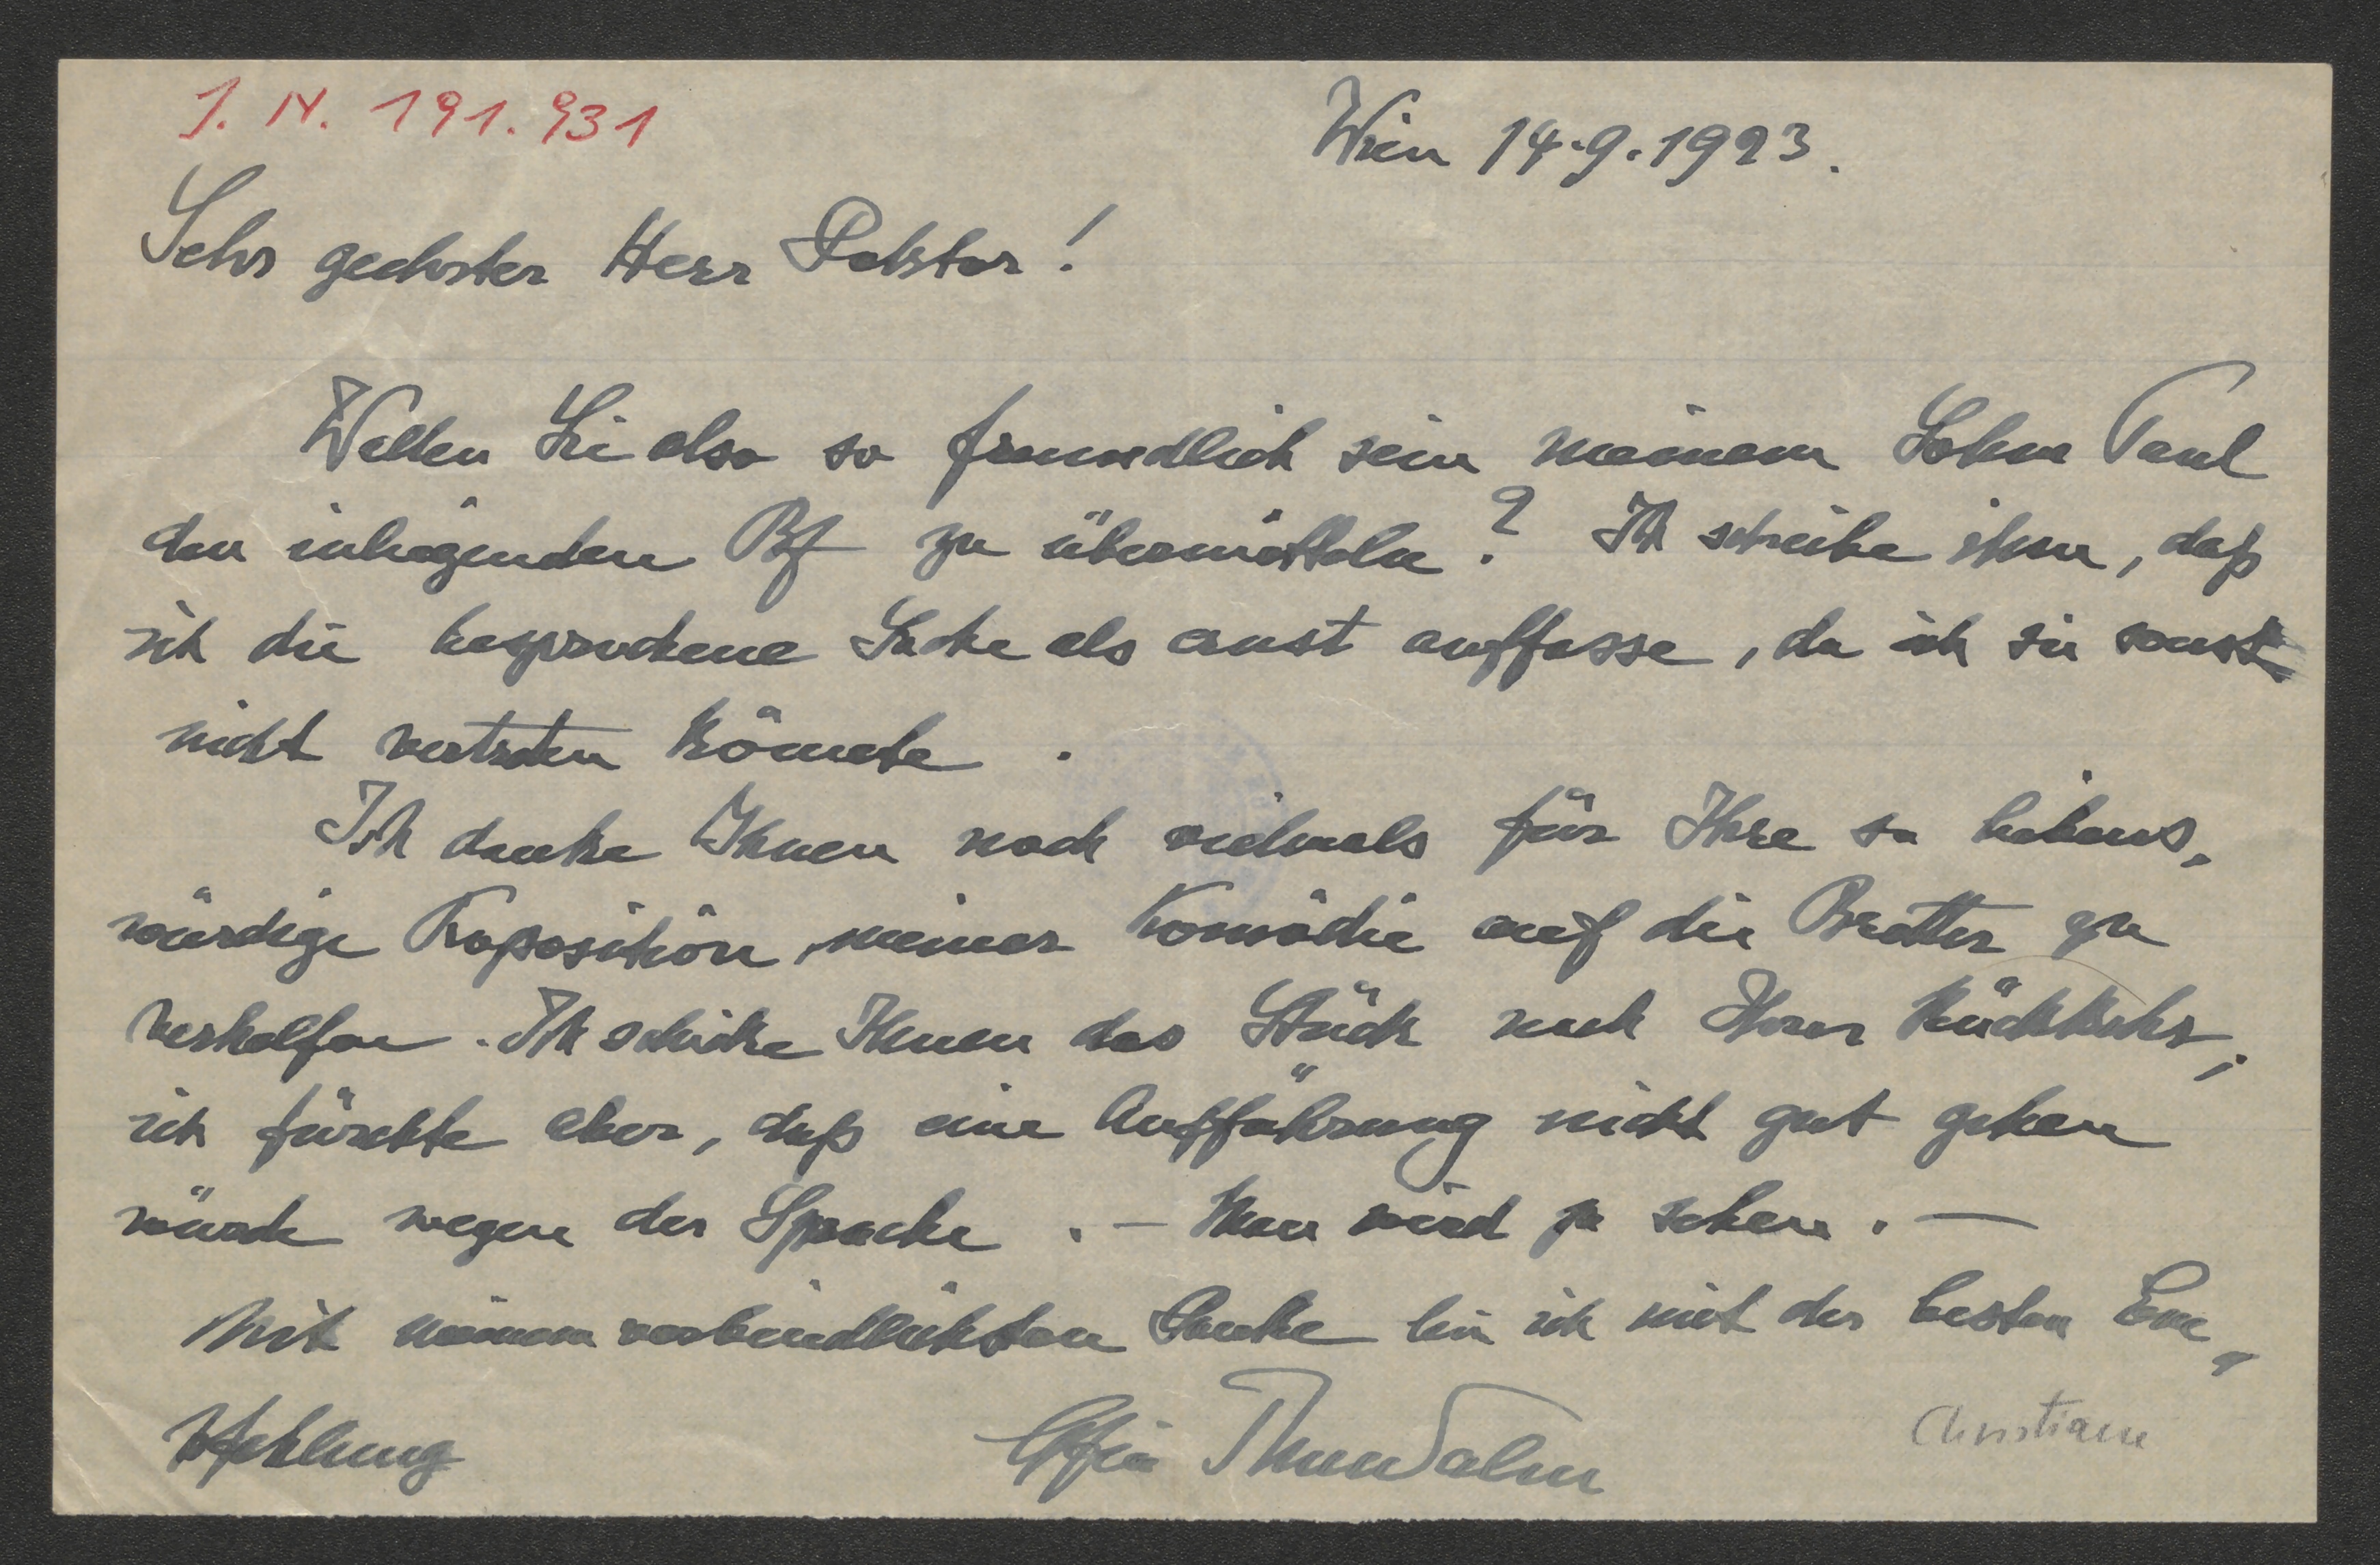 J. N. 191.931
Wien 14.9.1923.
Sehr geehrter Herr Doktor!
Wollen Sie also so freundlich sein meinem Sohne Paul
den inliegenden Bf zu übermitteln? Ich schreibe ihm, daß
ich die besprochene Sache als ernst auffasse, da ich sie sonst
nicht vertreten könnte.
Ich danke Ihnen noch vielmals für Ihre so liebens,
würdige Proposition, meiner Komödie auf die Bretter zu
verhelfen. Ich schicke Ihnen das Stück nach Ihrer Rückkehr;
ich fürchte aber, daß eine Aufführung nicht gut gehen
würde wegen der Sprache. – Man wird ja sehen. –
Mit meinem verbindlichsten Danke bin ich mit der besten Em,
pfehlung
Gfin ThunSalm
Christiane